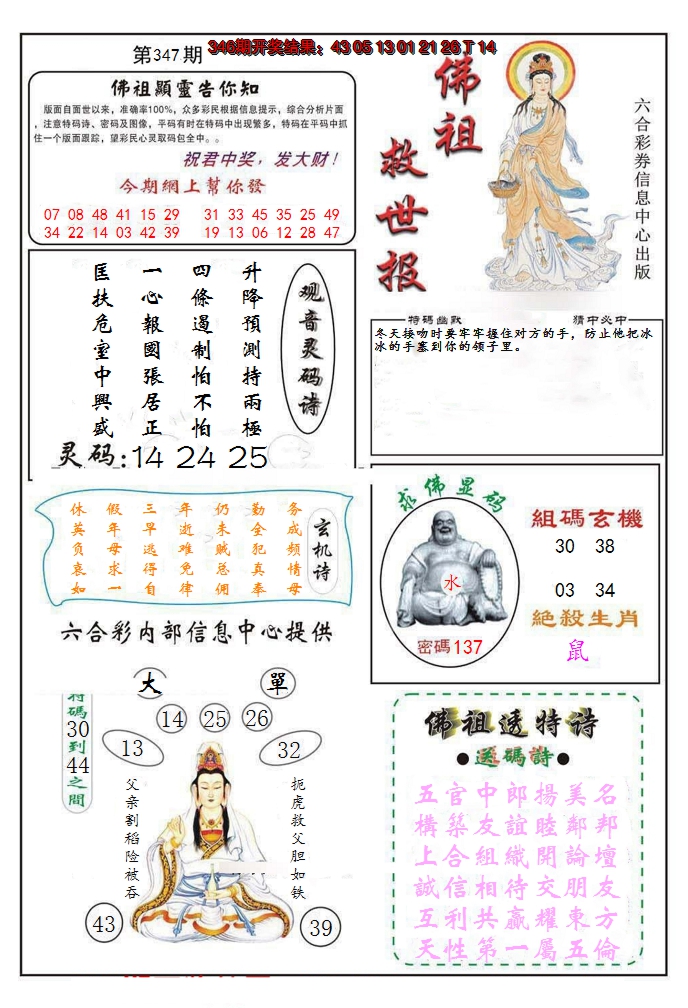 第347期
346期开奖结果：43 05 13 01 21 26 T 14
佛祖顯靈告你知
版面自面世以来，准确率100%，众多彩民根据信息提示，综合分析片面
，注意特码诗、密码及图像，平码有时在特码中出现繁多，特码在平码中抓
住一个版面跟踪，望彩民心灵取码包全中。。
祝君中奖，发大财！
今期網上幫你發
07 08 48 41 15 29 31 33 45 35 25 49
34 22 14 03 42 39 19 13 06 12 28 47
佛祖救世报
六合彩券信息中心出版
观音灵码诗
升降預測持兩極
四條遏制怕不怕
一心報國張居正
匡扶危室中興盛
灵码:14 24 25
特碼幽默
猜中必中
冬天接吻时要牢牢握住对方的手，防止他把冰
冰的手塞到你的领子里。
玄机诗
务成频情母
勤全犯真奉
仍未贼总佣
年逝难免律
三早逃得自
假年母求一
休英负哀如
六合彩内部信息中心提供
求佛显码
水
密碼137
組碼玄機
30 38
03 34
絕殺生肖
鼠
大
單
特碼30到44之間
14
25
26
13
32
父亲割稻险被吞
扼虎救父胆如铁
43
39
佛祖透特诗
●送碼詩●
五官中郎揚美名
構築友誼睦鄰邦
上合組織開論壇
誠信相待交朋友
互利共贏耀東方
天性第一屬五倫